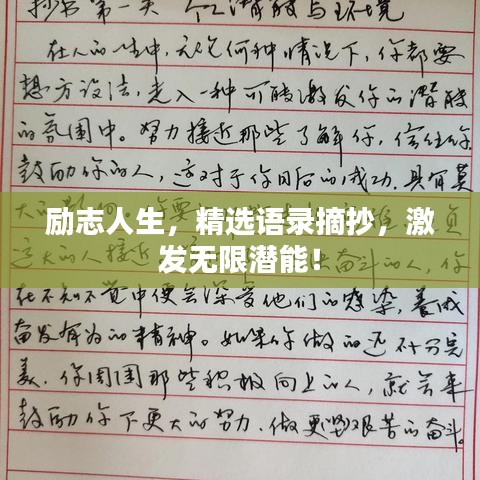 抄书第一天 个人潜能与环境
在人的一生中，无论何种情况下，你都要
想方设法，走入一种可能激发你的潜能
的氛围中。努力接近那些了解你，信任你，
鼓励你的人，这对于你日后的成功，具有莫
大的
励志人生，精选语录摘抄，激
发无限潜能！
奋斗的人，你
在不知不觉中便会深受他们的感染，养成
奋发有为的精神。如果你做的还不十分完
美，你周围那些积极向上的人，就会来
鼓励你下更大的努力，做更坚艰苦的奋斗。